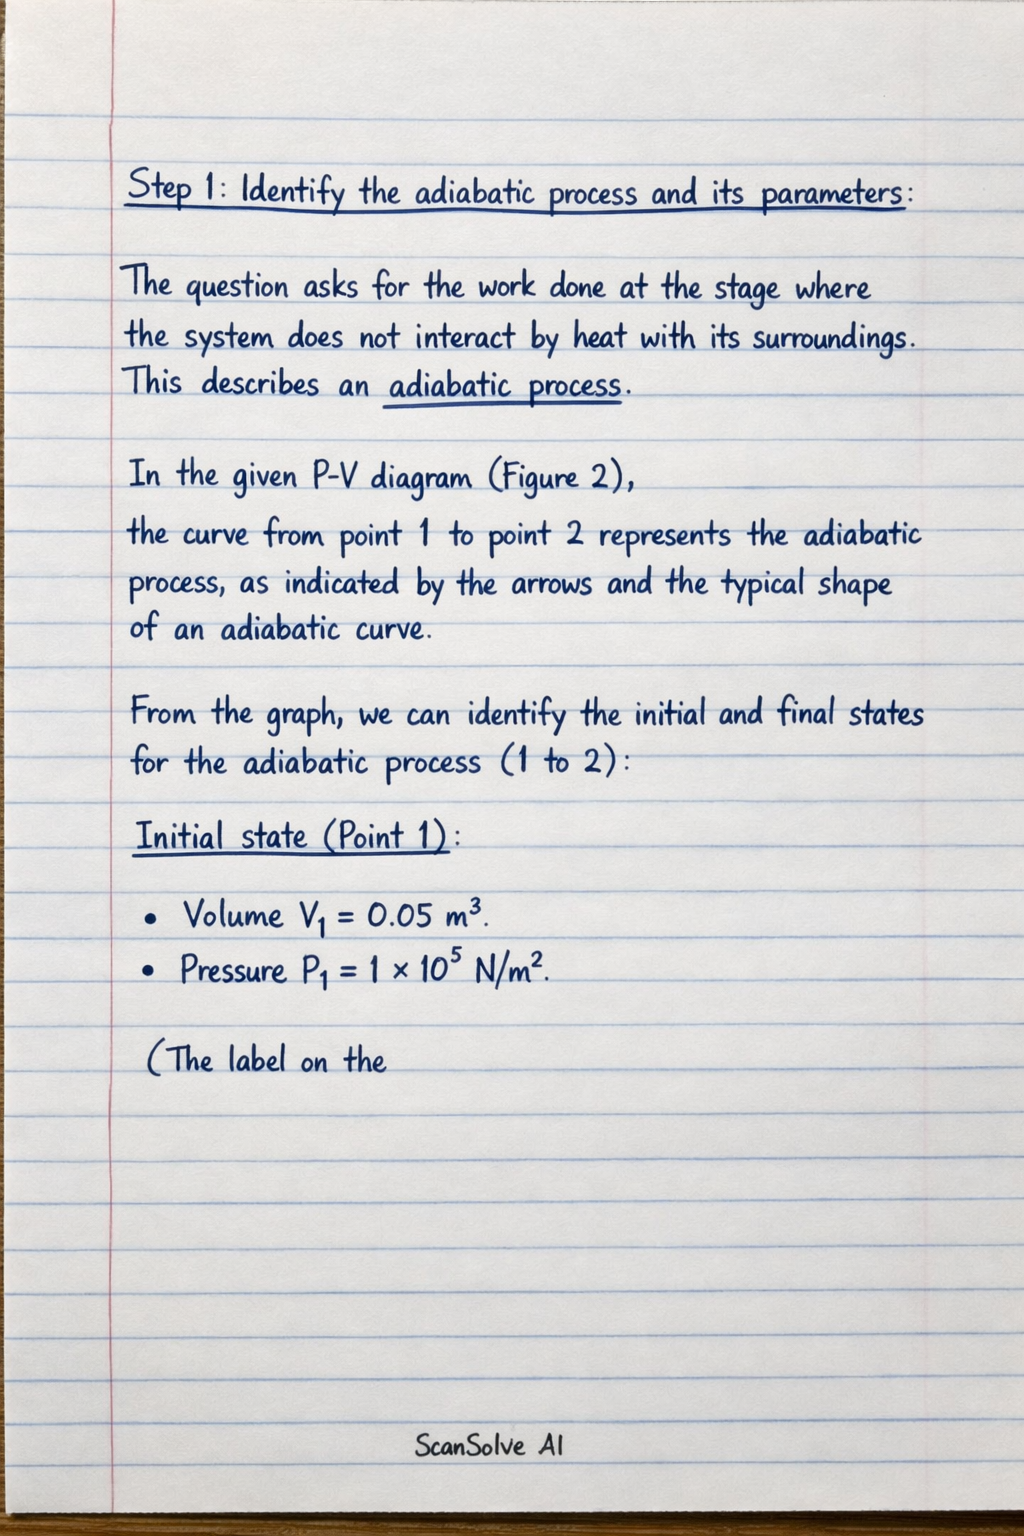 Step 1: Identify the adiabatic process and its parameters:
The question asks for the work done at the stage where
the system does not interact by heat with its surroundings.
This describes an adiabatic process.
In the given P-V diagram (Figure 2),
the curve from point 1 to point 2 represents the adiabatic
process, as indicated by the arrows and the typical shape
of an adiabatic curve.
From the graph, we can identify the initial and final states
for the adiabatic process (1 to 2):
Initial state (Point 1):
• Volume V₁ = 0.05 m³.
• Pressure P₁ = 1 × 10⁵ N/m².
(The label on the
ScanSolve AI